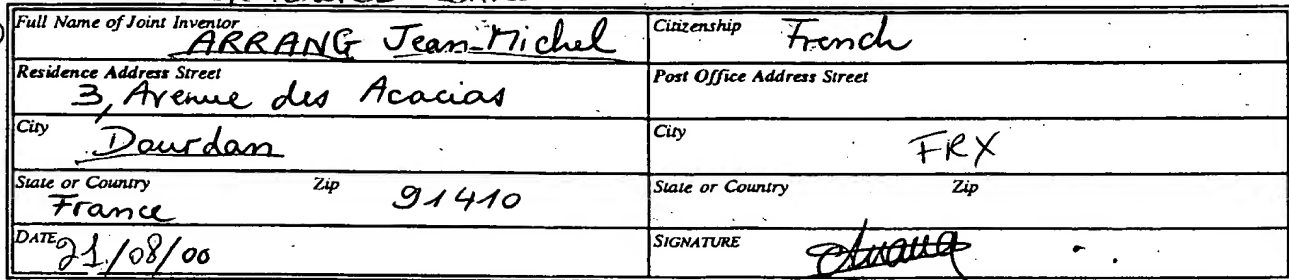 Full Name of Joint Inventor ARRANG Jean-Michel
Citizenship French
Residence Address Street 3, Avenue des Acacias
Post Office Address Street
City Dourdan
City FRX
State or Country France Zip 91410
State or Country Zip
DATE 21/08/00
SIGNATURE